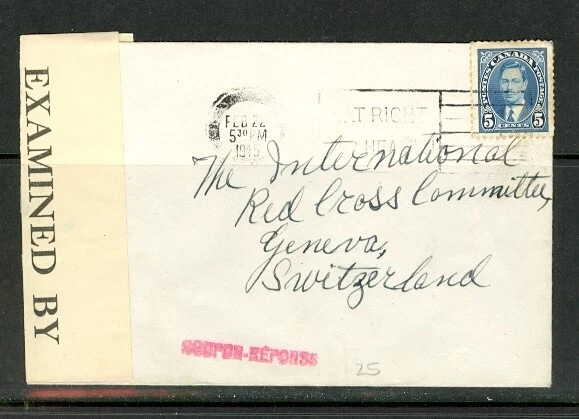 EXAMINED BY
POSTES CANADA POSTAGE
5 CENTS 5
FEB 22
5 30 PM
1945
EAT RIGHT
The International
Red Cross Committee,
Geneva,
Switzerland
COUPON-RÉPONSE
25